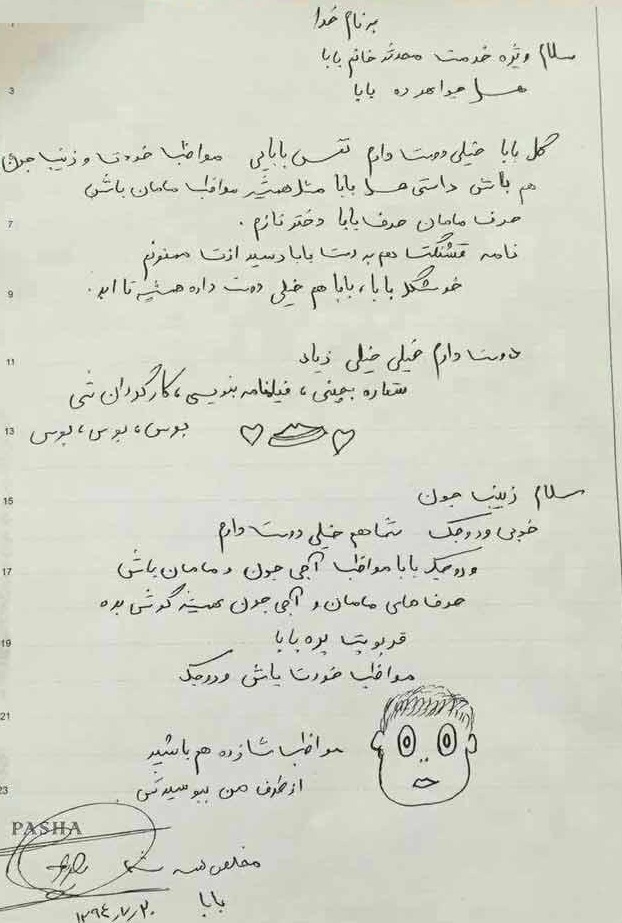 به نام خدا
سلام ویژه خدمت محدثه خانم بابا
3
عسل بابا
گل بابا خیلی دوست دارم نفس بابایی مواظب خودت و زینب جون
هم باش راستی عسل بابا مثل همیشه مواظب مامان باش
7
حرف مامان حرف بابا دختر نازم.
نامه قشنگت هم به دست بابا رسید ازت ممنونم
9
خوشگل بابا، بابا هم خیلی دوست داره همیشه تا ابد.
11
دوست دارم خیلی خیلی زیاد
ستاره بچینی، فیلنامه بنویسی، کارگردان شی
13
بوس، بوس، بوس
15
سلام زینب جون
خوبی وروجک شما هم خیلی دوست دارم
17
وروجک بابا مواظب آجی جون و مامان باش
حرف های مامان و آجی جون همیشه گوش بده
19
قربونت بره بابا
مواظب خودت باش وروجک
21
مواظب شازده هم باشید
23
از طرف من ببوسیدش.
PASHA
مخلص همه شما
بابا
۱۳۹۴/۷/۲۰